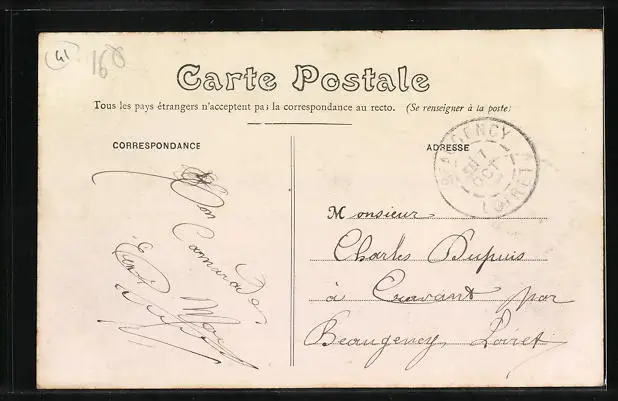 41
160
Carte Postale
Tous les pays étrangers n'acceptent pas la correspondance au recto. (Se renseigner à la poste)
CORRESPONDANCE
ADRESSE
BEAUGENCY
OCT
LOIRET
Monsieur
Charles Dupuis
à Cravant par
Beaugency Loiret
Bon
Camarade